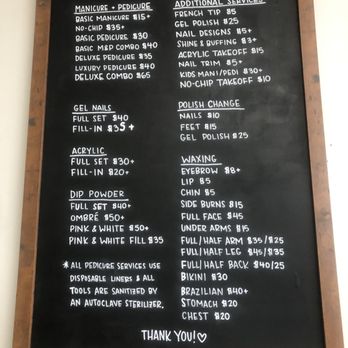 MANICURE + PEDICURE
BASIC MANICURE $15+
NO-CHIP $35+
BASIC PEDICURE $30
BASIC M&P COMBO $40
DELUXE PEDICURE $35
LUXURY PEDICURE $40
DELUXE COMBO $65
GEL NAILS
FULL SET $40
FILL-IN $35+
ACRYLIC
FULL SET $30+
FILL-IN $20+
DIP POWDER
FULL SET $40+
OMBRÉ $50+
PINK & WHITE $50+
PINK & WHITE FILL $35
*ALL PEDICURE SERVICES USE
DISPOSABLE LINERS & ALL
TOOLS ARE SANITIZED BY
AN AUTOCLAVE STERILIZER.
ADDITIONAL SERVICES
FRENCH TIP $5
GEL POLISH $25
NAIL DESIGNS $5+
SHINE & BUFFING $3+
ACRYLIC TAKEOFF $15
NAIL TRIM $5+
KIDS MANI/PEDI $30+
NO-CHIP TAKEOFF $10
POLISH CHANGE
NAILS $10
FEET $15
GEL POLISH $25
WAXING
EYEBROW $8+
LIP $5
CHIN $5
SIDE BURNS $15
FULL FACE $45
UNDER ARMS $15
FULL/HALF ARM $35/$25
FULL/HALF LEG $45/$35
FULL/HALF BACK $40/25
BIKINI $30
BRAZILIAN $40+
STOMACH $20
CHEST $20
THANK YOU!♡